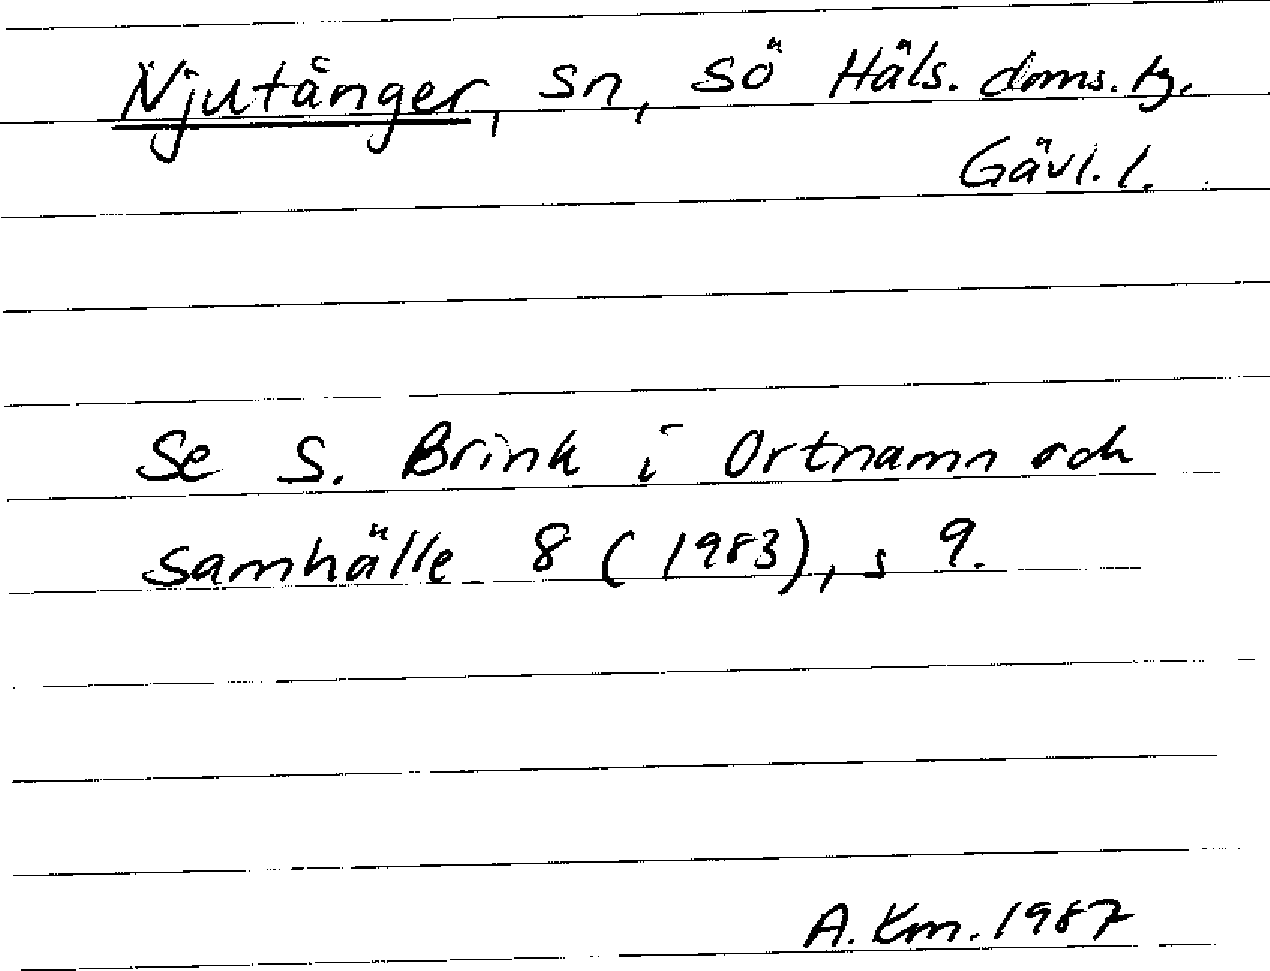 Njutånger, sn, Sö Häls. doms. tg.
Gävl. l.
Se S. Brink i Ortnamn och
samhälle 8 (1983), s 9.
A. Km. 1987